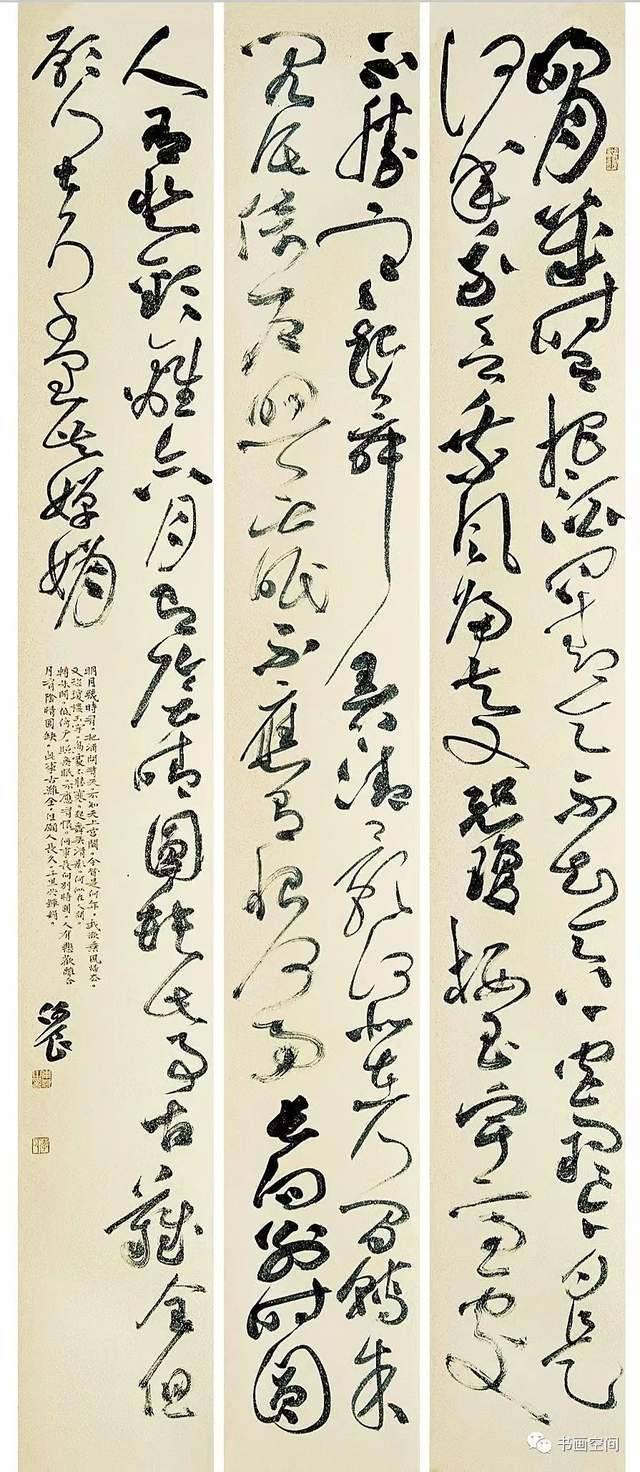 明月幾時有把酒問青天不知天上宮闕今夕是
何年我欲乘風歸去又恐瓊樓玉宇高處
不勝寒起舞弄清影何似在人間轉朱
閣低倚户照無眠不應有恨何事長向別時圓
人有悲歡離合月有陰晴圓缺此事古難全但
願人長久千里共嬋娟
明月幾時有，把酒問青天，不知天上宮闕，今夕是何年，我欲乘風歸去，
又恐瓊樓玉宇，高處不勝寒，起舞弄清影，何似在人間。
轉朱閣，低倚户，照無眠，不應有恨，何事長向別時圓，人有悲歡離合
月有陰晴圓缺，此事古難全，但願人長久，千里共嬋娟。
书画空间